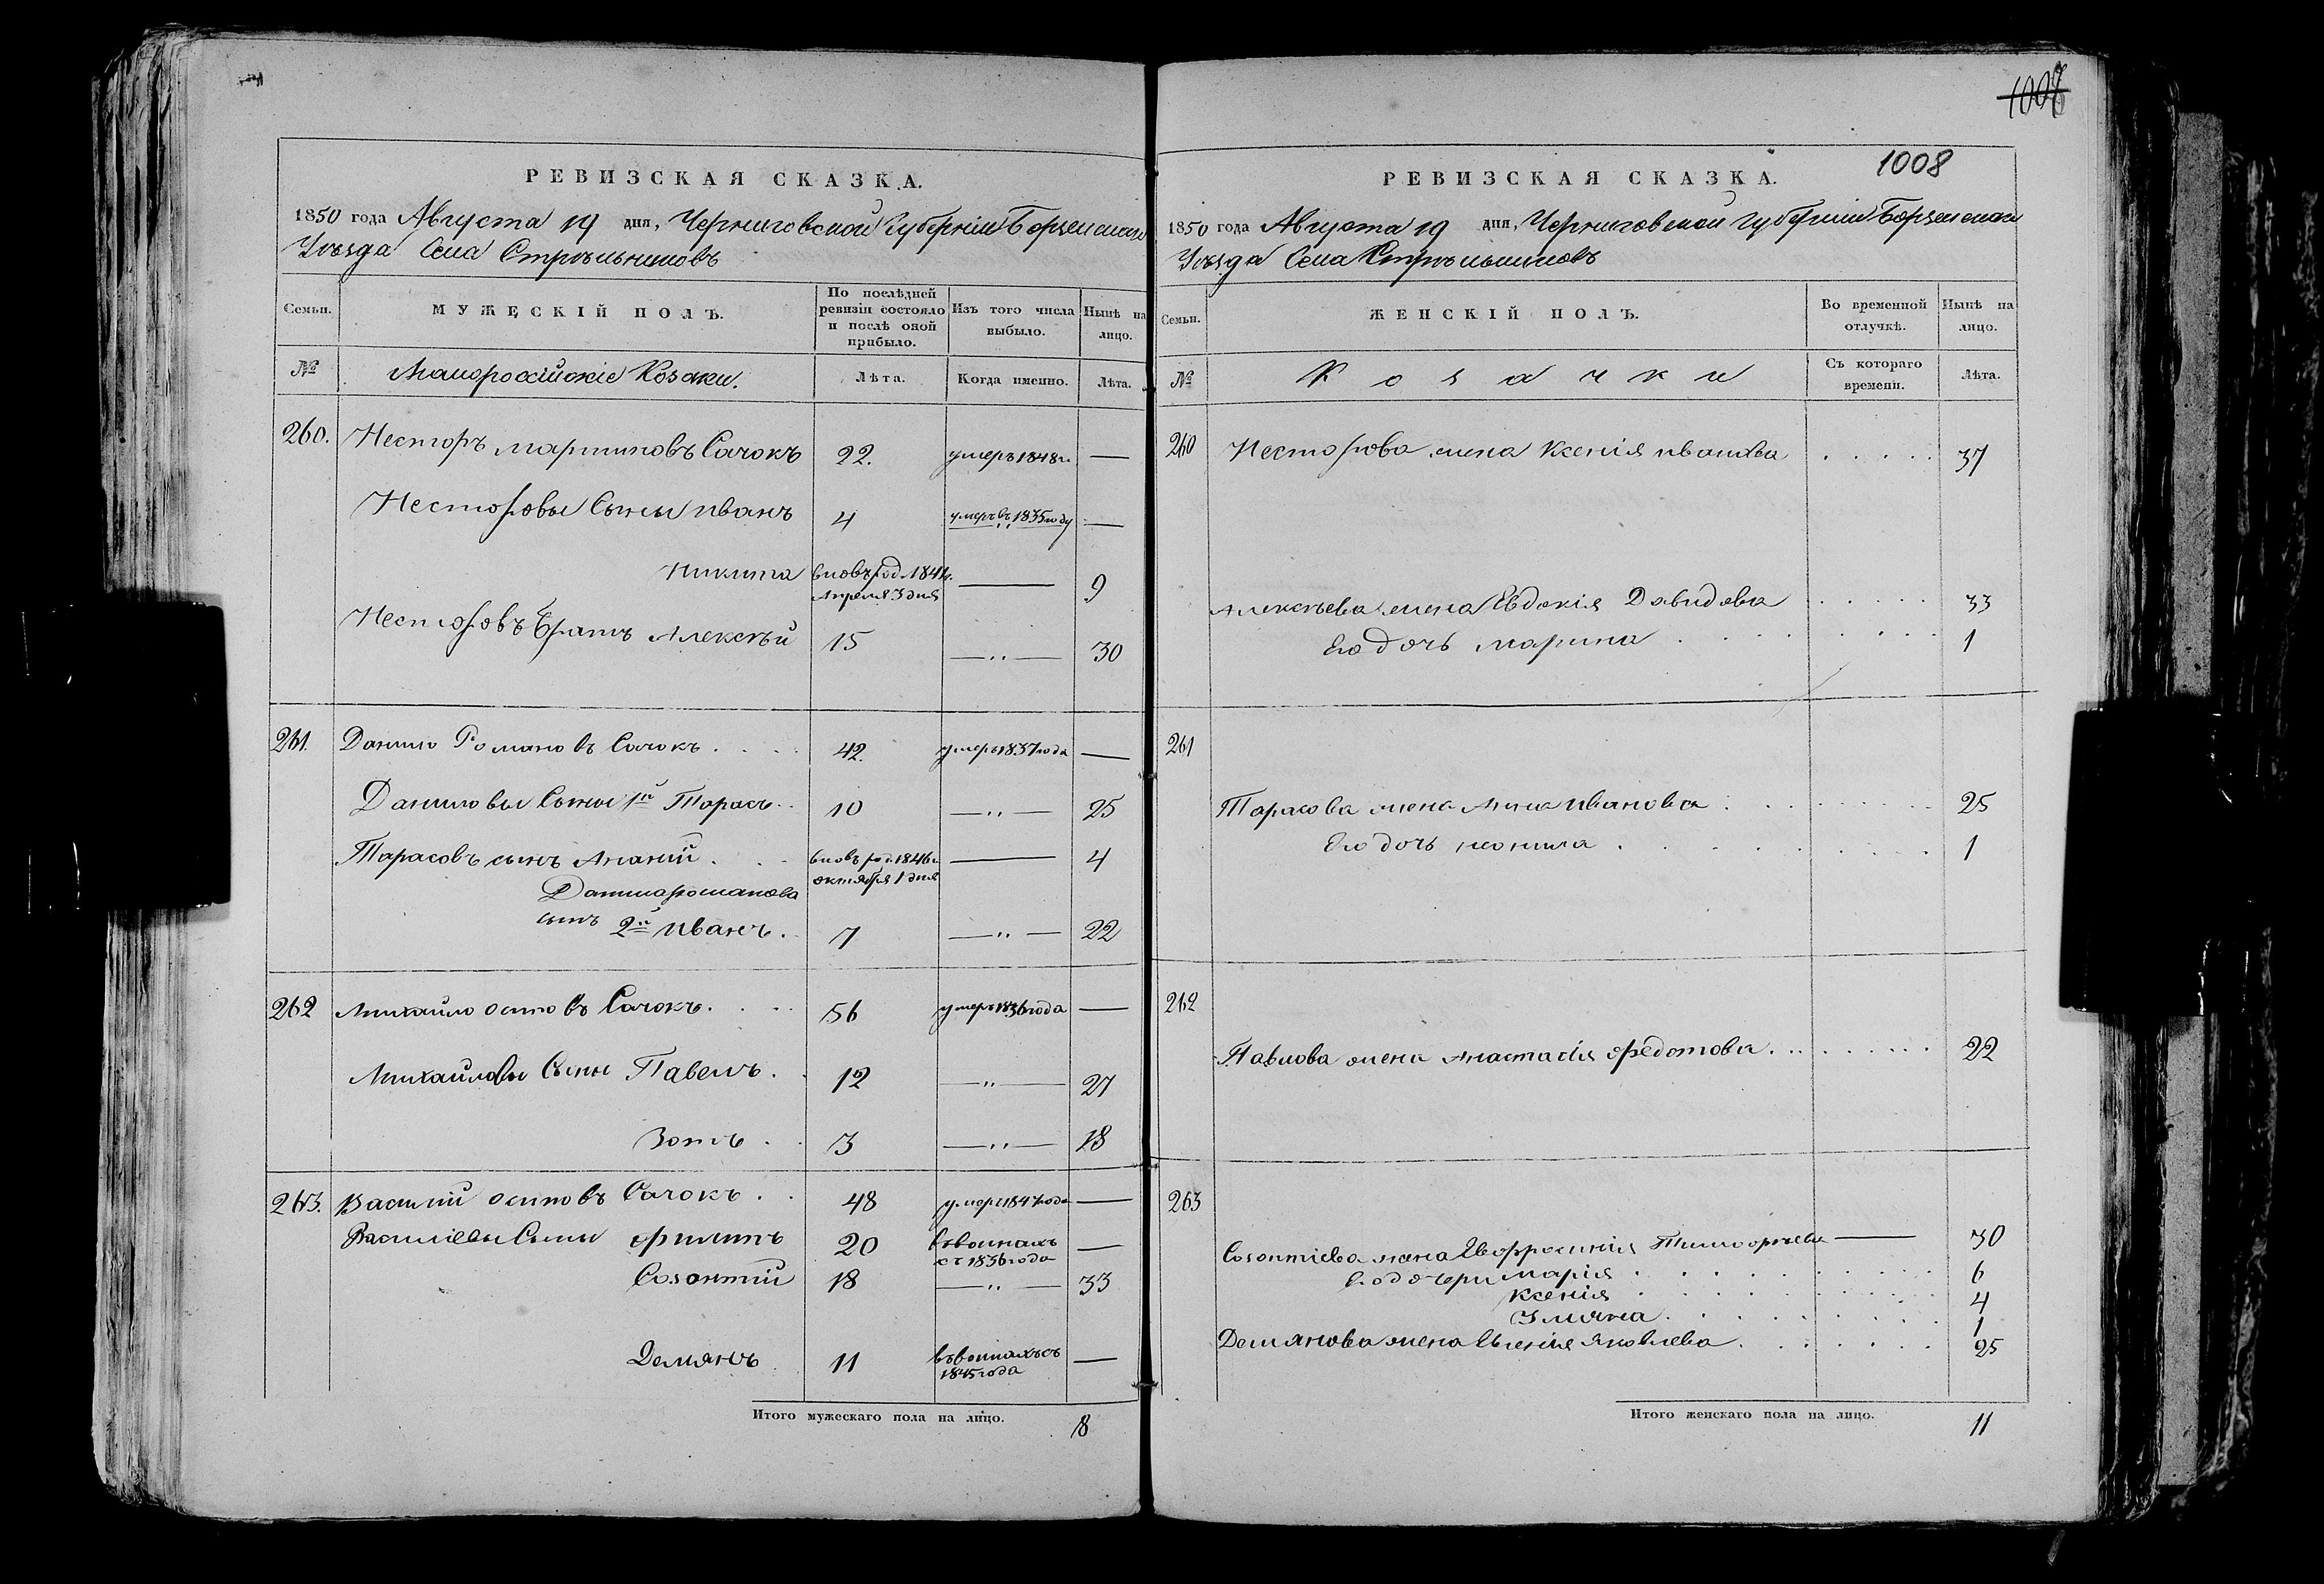 РЕВИЗСКАЯ СКАЗКА.
1850 года Августа 19 дня, Черниговской Губернiи Борзенскаго
Уѣзда Села Стрѣльниковъ
Семьи.
МУЖЕСКІЙ ПОЛЪ.
По послѣдней ревизіи состояло и послѣ оной прибыло.
Изъ того числа выбыло.
Нынѣ на лицо.
№
Малоросiйскіе Козаки.
Лѣта.
Когда именно.
Лѣта.
260. Несторъ Мартиновъ Сачокъ 22. умеръ 1848 г. —
Несторовы Сыны иванъ 4 умеръ въ 1835 году —
Никита вновь род. 1841 г. — 9
Апреля 3 дня
Несторовъ братъ Алексѣй 15 —„— 30
261. Данило Романовъ Сачокъ . . . . 42. умеръ 1837 года —
Даниловы Сыны 1й Тарасъ . . 10 —„— 25
Тарасовъ сынъ Ананiй . . . вновь род. 1846 г. — 4
октября 1 дня
Данила романова
сынъ 2й иванъ . 7 —„— 22
262 Михайло осиповъ Сачокъ . . . . 56 умеръ 1836 года —
Михайловы Сыны Павелъ . . 12 —„— 27
Зотъ . . 3 —„— 18
263. Василiй осиповъ Сачокъ . . 48 умеръ 1847 года —
Василiевы Сыны филипъ 20 въ воинахъ —
съ 1836 года
Созонтiй 18 —„— 33
Демянъ 11 въ воинахъ съ —
1845 года
Итого мужескаго пола на лицо. 8
1007
1008
РЕВИЗСКАЯ СКАЗКА.
1850 года Августа 19 дня, Черниговской Губернiи Борзенскаго
Уѣзда Села Стрѣльниковъ
Семьи.
ЖЕНСКІЙ ПОЛЪ.
Во временной отлучкѣ.
Нынѣ на лицо.
№
Козачки
Съ котораго времени.
Лѣта.
260 Несторова жена Ксенiя иванова . . . . . 37
Алексѣева жена Евдокiя Давидова . . . . . 33
Его дочь марина . . . . . . . 1
261
Тарасова жена Анна ивановна . . . . . . . . 25
Его дочь . . . . . . . . 1
262
Павлова жена Анастасiя федотова . . . . . . . . 22
263
Созонтiева жена Евфросинiя Тимофѣева — 30
Его дочери марiя . . . . . . . 6
Ксенiя . . . . . . . 4
Улияна . . . . . . . 1
Демянова жена Евгенiя Яковлева . . . . . . . 25
Итого женскаго пола на лицо. 11